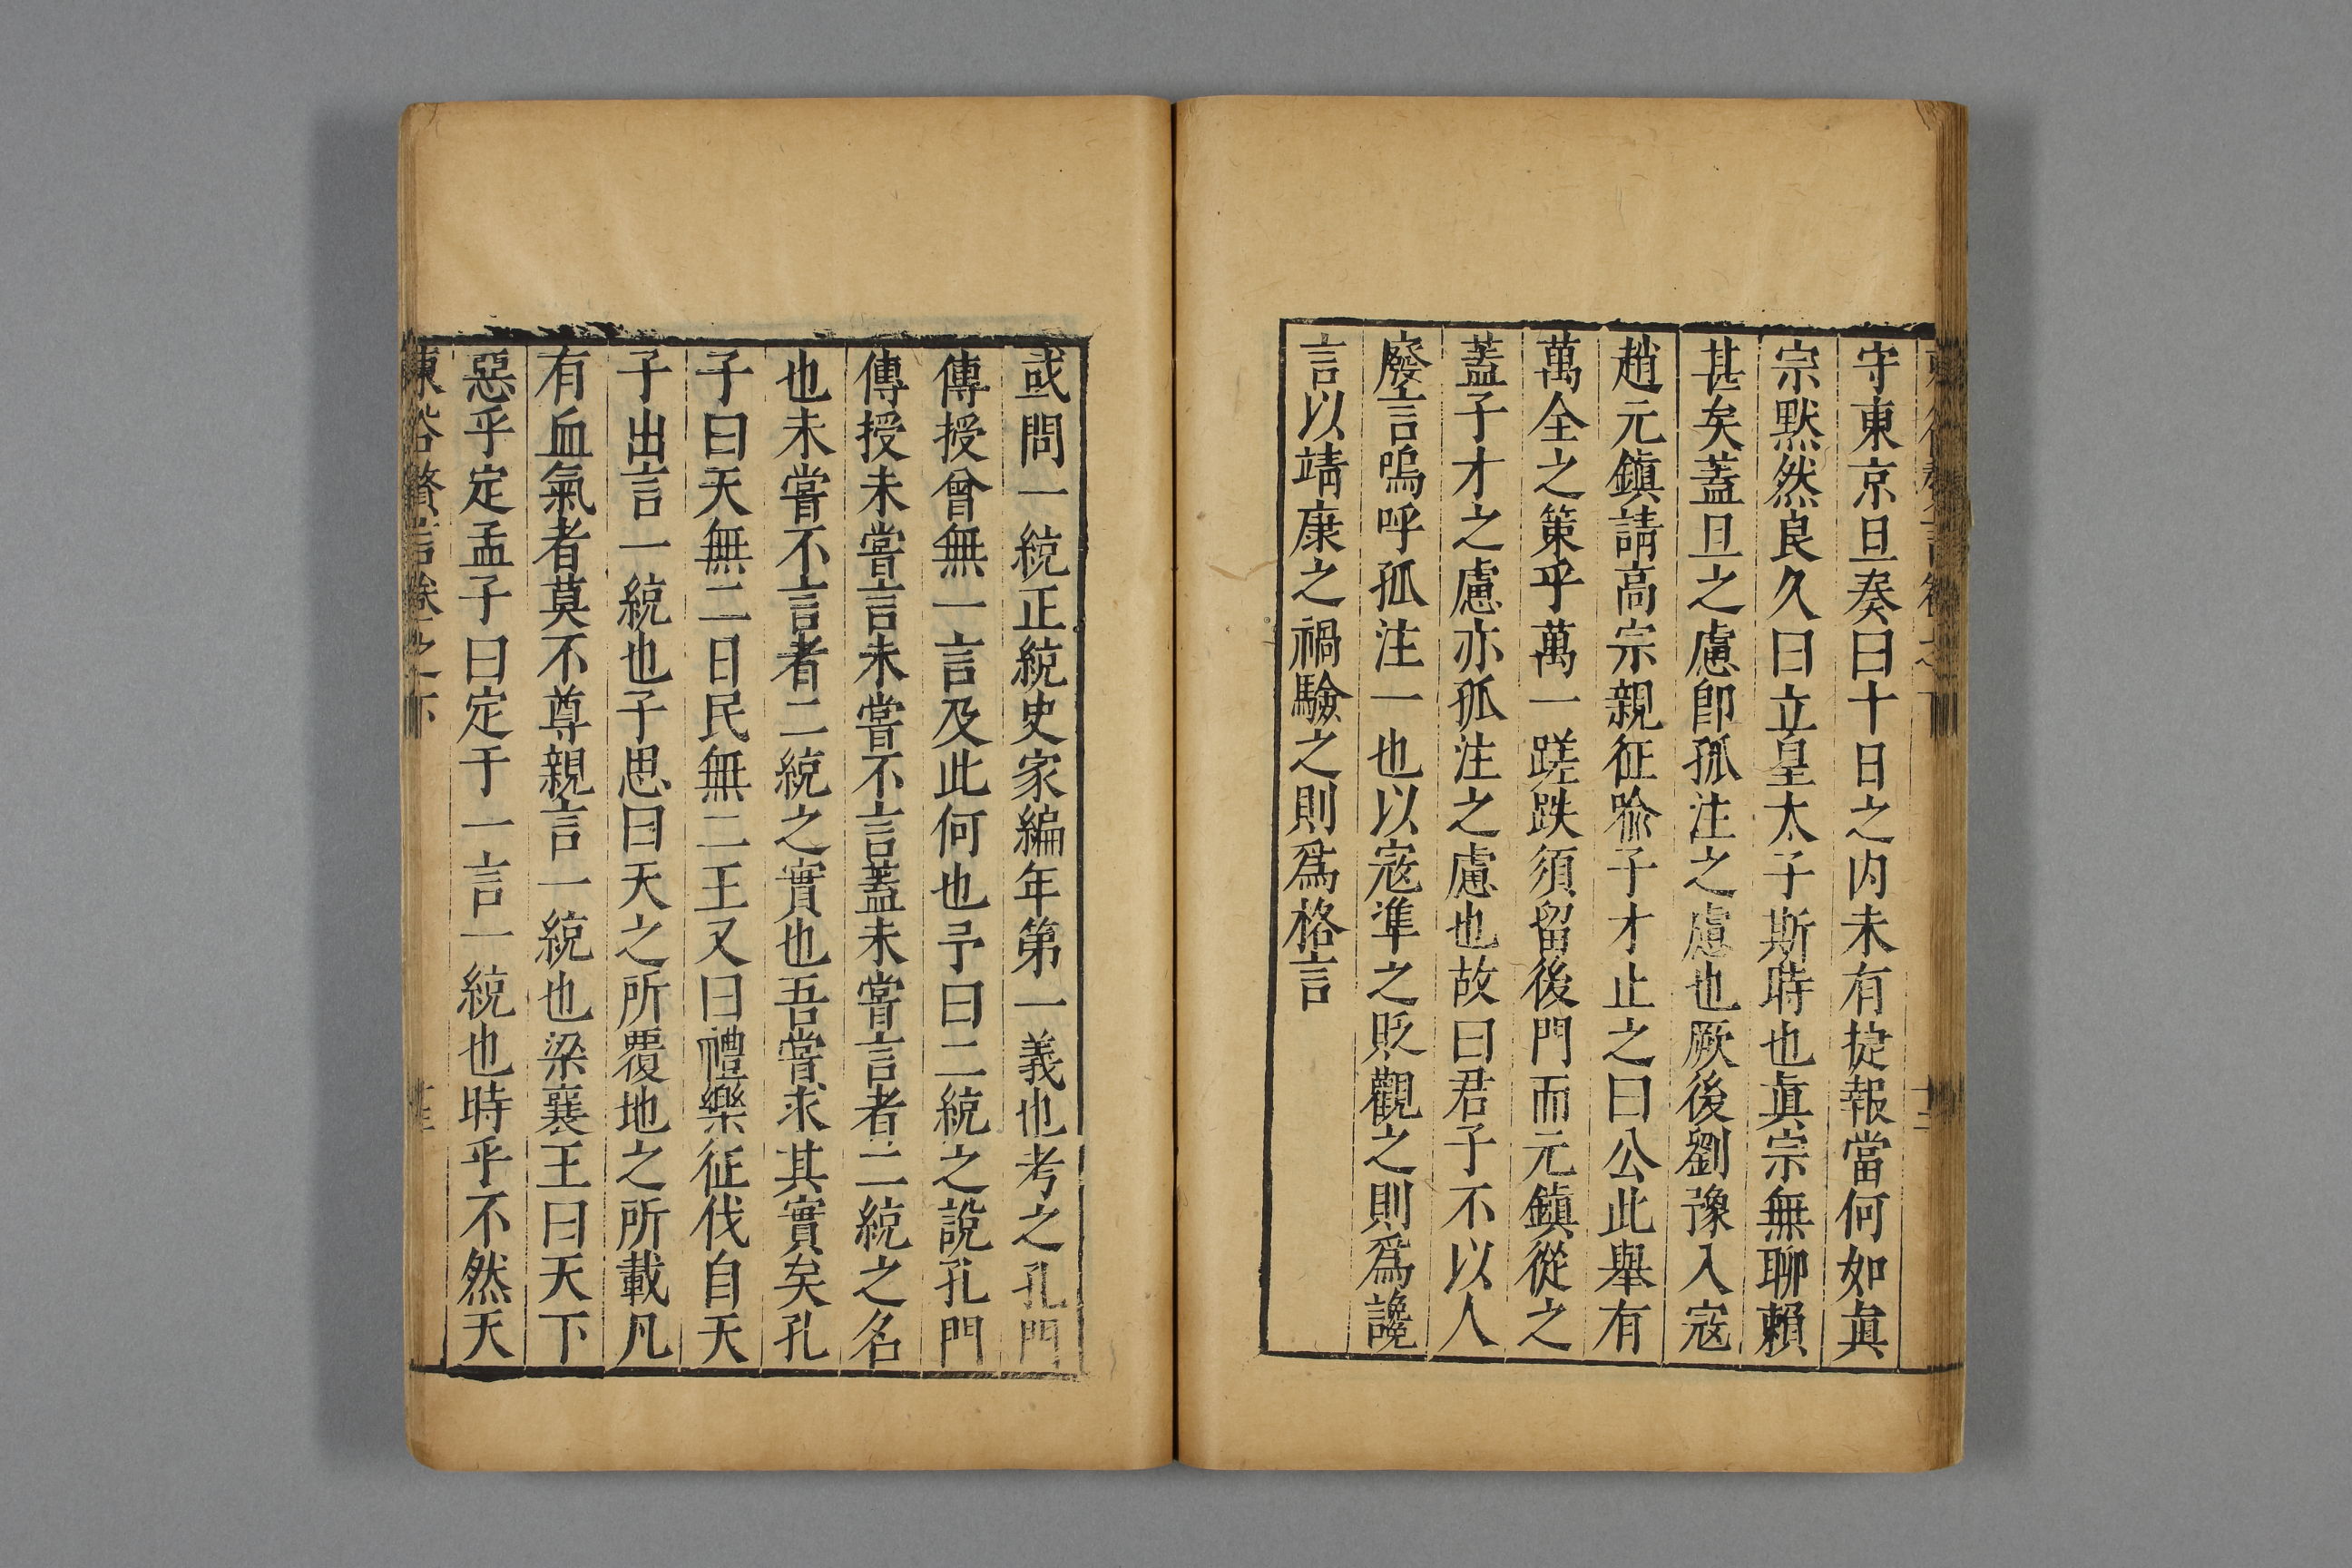 守東京旦奏曰十日之内未有捷報當何如眞
宗默然良久曰立皇太子斯時也眞宗無聊賴
甚矣蓋旦之慮卽孤注之慮也厥後劉豫入寇
趙元鎭請高宗親征喩子才止之曰公此舉有
萬全之策乎萬一蹉跌須留後門而元鎭從之
蓋子才之慮亦孤注之慮也故曰君子不以人
廢言嗚呼孤注一也以寇準之貶觀之則爲讒
言以靖康之禍驗之則爲格言
或問一統正統史家編年第一義也考之孔門
傳授曾無一言及此何也予曰二統之說孔門
傳授未嘗言未嘗不言蓋未嘗言者二統之名
也未嘗不言者二統之實也吾嘗求其實矣孔
子曰天無二日民無二王又曰禮樂征伐自天
子出言一統也子思曰天之所覆地之所載凡
有血氣者莫不尊親言一統也梁襄王曰天下
惡乎定孟子曰定于一言一統也時乎不然天
東谷贅言卷之下